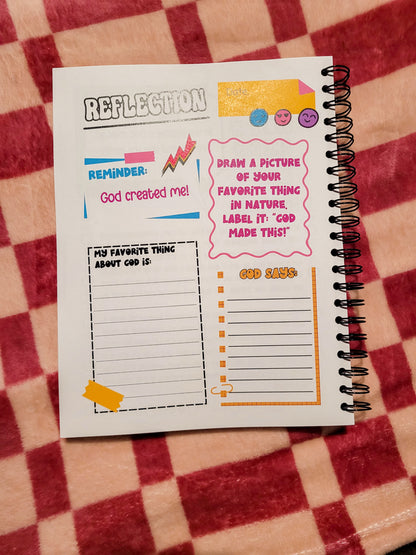 REFLECTION
REMINDER:
God created me!
DRAW A PICTURE
OF YOUR
FAVORITE THING
IN NATURE,
LABEL IT: "GOD
MADE THIS!"
MY FAVORITE THING
ABOUT GOD IS:
GOD SAYS: